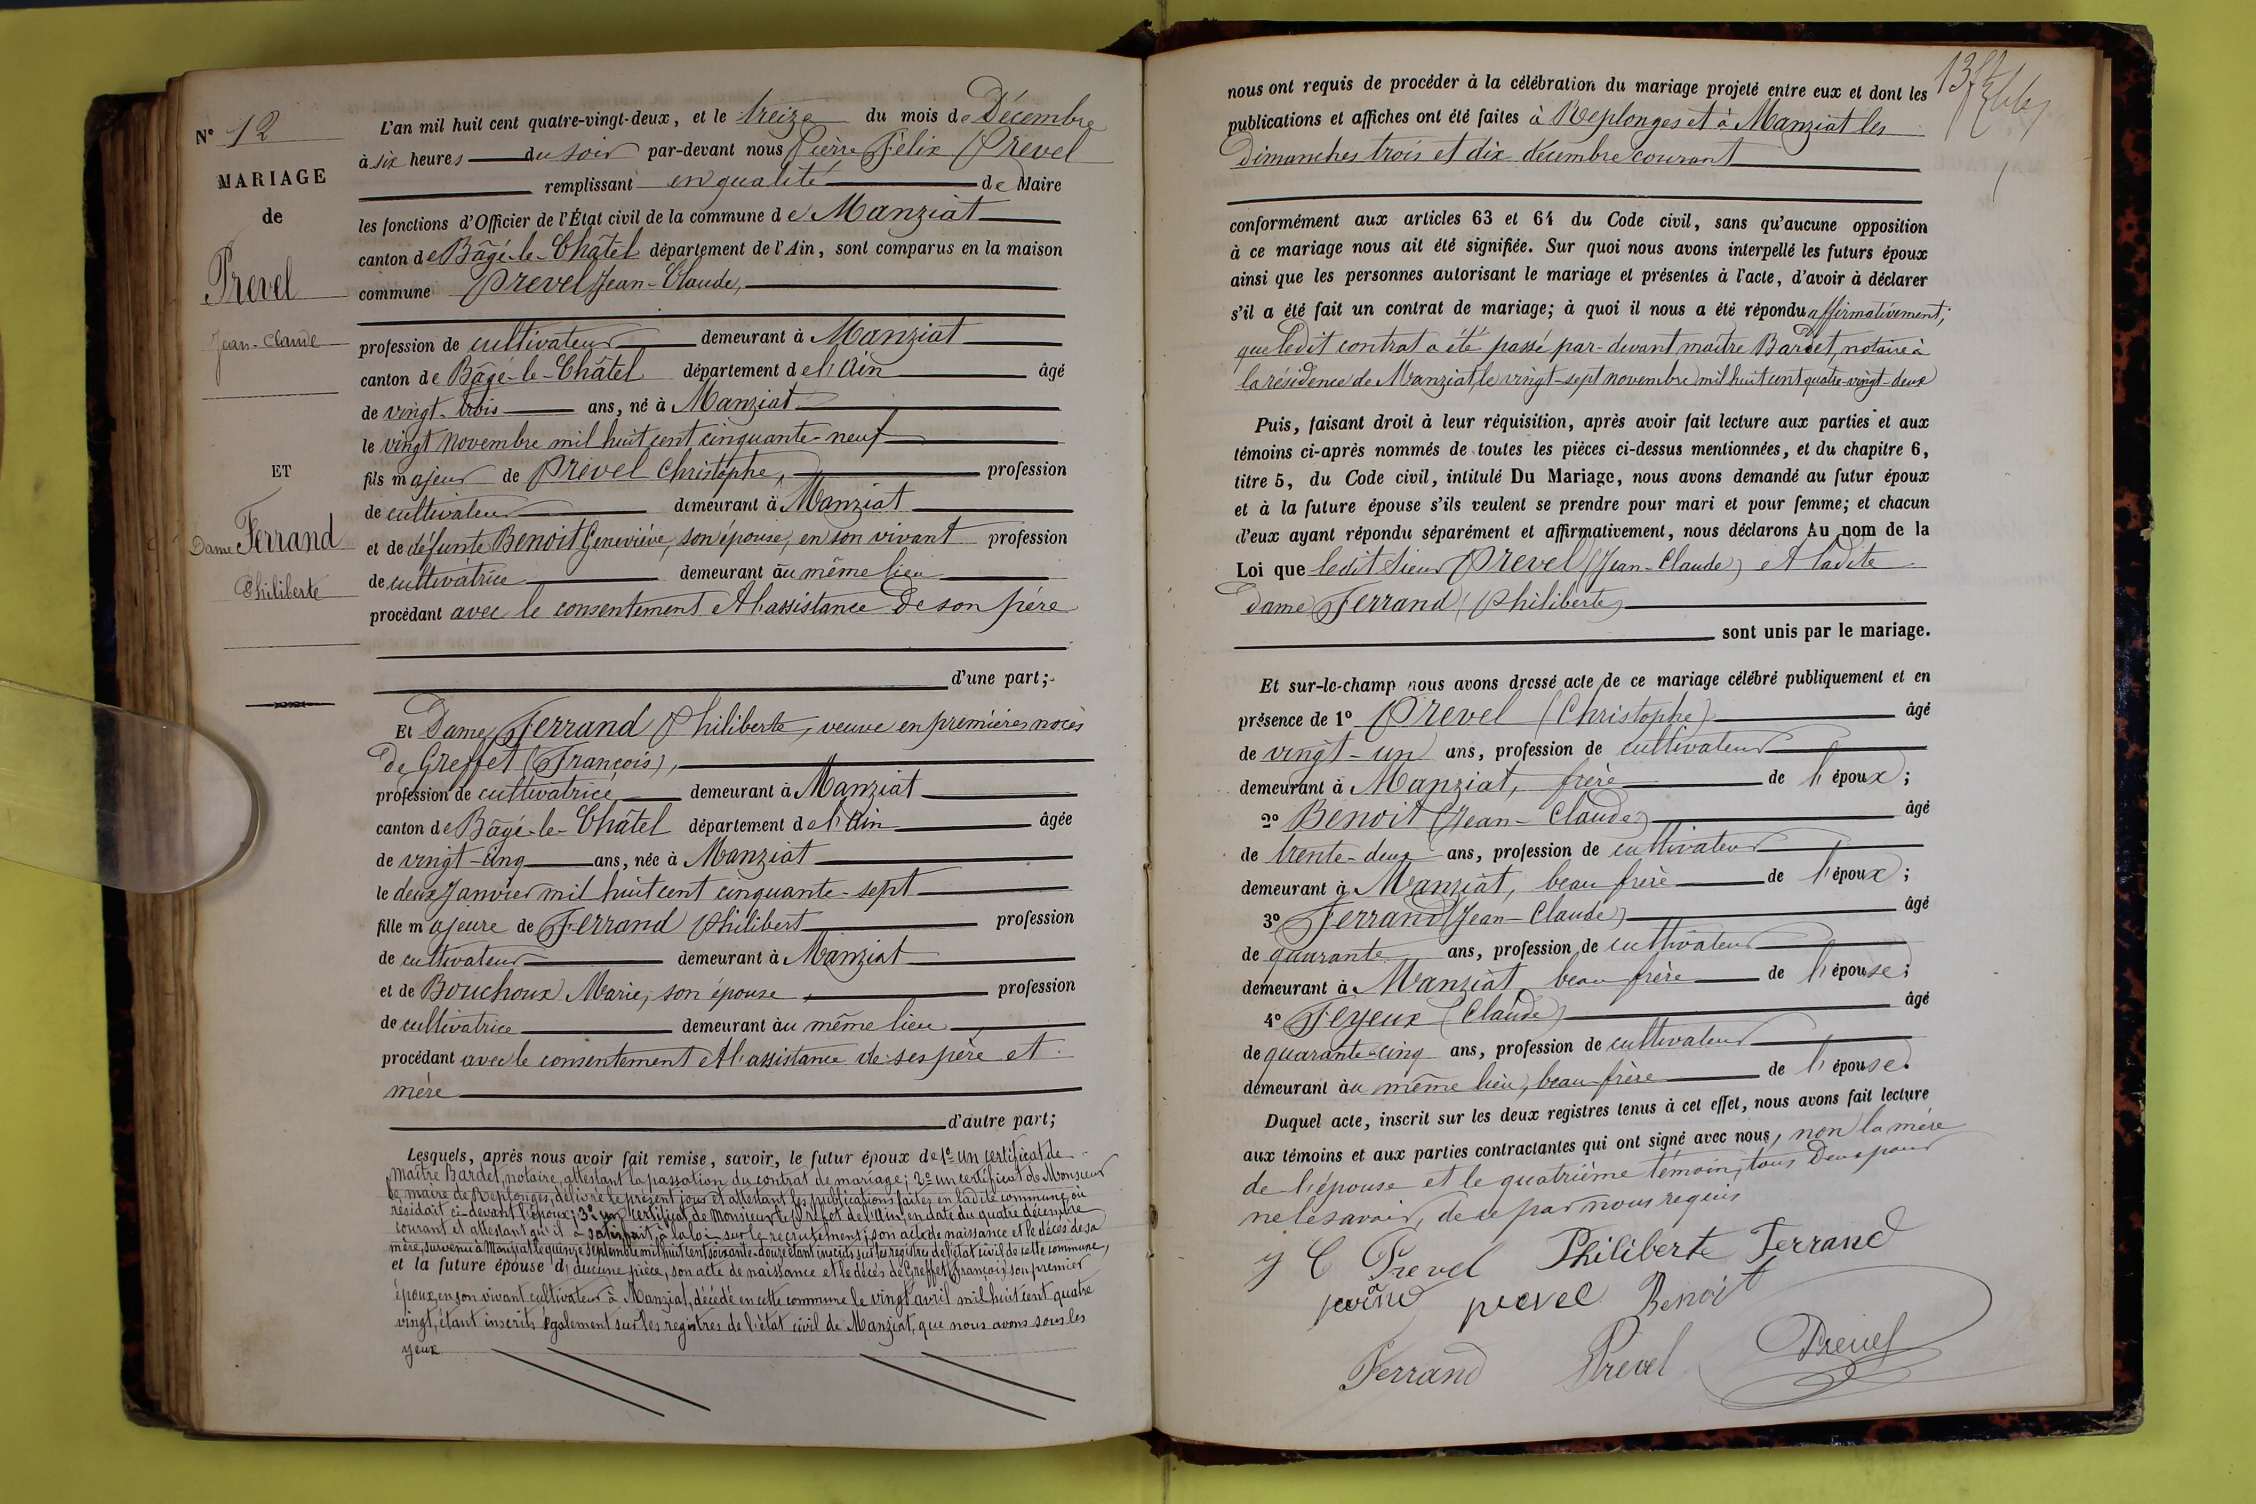 N° 12
MARIAGE
de
Prevel
Jean-Claude
ET
Dame Ferrand
Philiberte
L'an mil huit cent quatre-vingt-deux, et le treize du mois de Décembre
à six heures du soir par-devant nous Pierre Félix Prevel
remplissant en qualité de Maire
les fonctions d'Officier de l'État civil de la commune de Manziat
canton de Bâgé-le-Châtel département de l'Ain, sont comparus en la maison
commune Prevel Jean-Claude,
profession de cultivateur demeurant à Manziat
canton de Bâgé-le-Châtel département de l'Ain âgé
de vingt-trois ans, né à Manziat
le vingt Novembre mil huit cent cinquante-neuf
fils majeur de Prevel Christophe, profession
de cultivateur demeurant à Manziat
et de défunte Benoit Geneviève, son épouse, en son vivant profession
de cultivatrice demeurant au même lieu
procédant avec le consentement et l'assistance de son père
d'une part;
Et Dame Ferrand Philiberte, veuve en premières noces
de Greffet (François),
profession de cultivatrice demeurant à Manziat
canton de Bâgé-le-Châtel département de l'Ain âgée
de vingt-cinq ans, née à Manziat
le deux Janvier mil huit cent cinquante-sept
fille majeure de Ferrand Philibert profession
de cultivateur demeurant à Manziat
et de Bouchoux Marie, son épouse, profession
de cultivatrice demeurant au même lieu
procédant avec le consentement et l'assistance de ses père et
mère
d'autre part;
Lesquels, après nous avoir fait remise, savoir, le futur époux de 1° un certificat de
Maître Bardet, notaire, attestant la passation du contrat de mariage; 2° un certificat de Monsieur
le maire de Replonges, délivré le présent jour et attestant les publications faites en ladite commune, où
résidait ci-devant l'époux; 3° un certificat de Monsieur le Préfet de l'Ain, en date du quatre décembre
courant et attestant qu'il a satisfait à la loi sur le recrutement; son acte de naissance et le décès de sa
mère, survenu à Manziat le quinze septembre mil huit cent soixante-douze étant inscrits sur les registres de l'état civil de cette commune,
et la future épouse d'aucune pièce, son acte de naissance et le décès de Greffet (François) son premier
époux, en son vivant cultivateur à Manziat, décédé en cette commune le vingt avril mil huit cent quatre
vingt, étant inscrits également sur les registres de l'état civil de Manziat, que nous avons sous les
yeux
nous ont requis de procéder à la célébration du mariage projeté entre eux et dont les
publications et affiches ont été faites à Replonges et à Manziat les
Dimanches trois et dix décembre courant
conformément aux articles 63 et 64 du Code civil, sans qu'aucune opposition
à ce mariage nous ait été signifiée. Sur quoi nous avons interpellé les futurs époux
ainsi que les personnes autorisant le mariage et présentes à l'acte, d'avoir à déclarer
s'il a été fait un contrat de mariage; à quoi il nous a été répondu affirmativement;
que ledit contrat a été passé par-devant maître Bardet, notaire à
la résidence de Manziat, le vingt-sept novembre mil huit cent quatre-vingt-deux
Puis, faisant droit à leur réquisition, après avoir fait lecture aux parties et aux
témoins ci-après nommés de toutes les pièces ci-dessus mentionnées, et du chapitre 6,
titre 5, du Code civil, intitulé Du Mariage, nous avons demandé au futur époux
et à la future épouse s'ils veulent se prendre pour mari et pour femme; et chacun
d'eux ayant répondu séparément et affirmativement, nous déclarons Au nom de la
Loi que ledit sieur Prevel (Jean-Claude) et ladite
Dame Ferrand (Philiberte)
sont unis par le mariage.
Et sur-le-champ nous avons dressé acte de ce mariage célébré publiquement et en
présence de 1° Prevel (Christophe) âgé
de vingt-un ans, profession de cultivateur
demeurant à Manziat, frère de l'époux;
2° Benoit (Jean-Claude) âgé
de trente-deux ans, profession de cultivateur
demeurant à Manziat, beau frère de l'époux;
3° Ferrand (Jean-Claude) âgé
de quarante ans, profession de cultivateur
demeurant à Manziat, beau frère de l'épouse;
4° Feyeux (Claude) âgé
de quarante-cinq ans, profession de cultivateur
demeurant au même lieu, beau-frère de l'épouse.
Duquel acte, inscrit sur les deux registres tenus à cet effet, nous avons fait lecture
aux témoins et aux parties contractantes qui ont signé avec nous, non la mère
de l'épouse et le quatrième témoin, tous Deux pour
ne le savoir, de ce par nous requis
J C Prevel Philiberte Ferrand
prevel Benoit
Ferrand Prevel Prevel